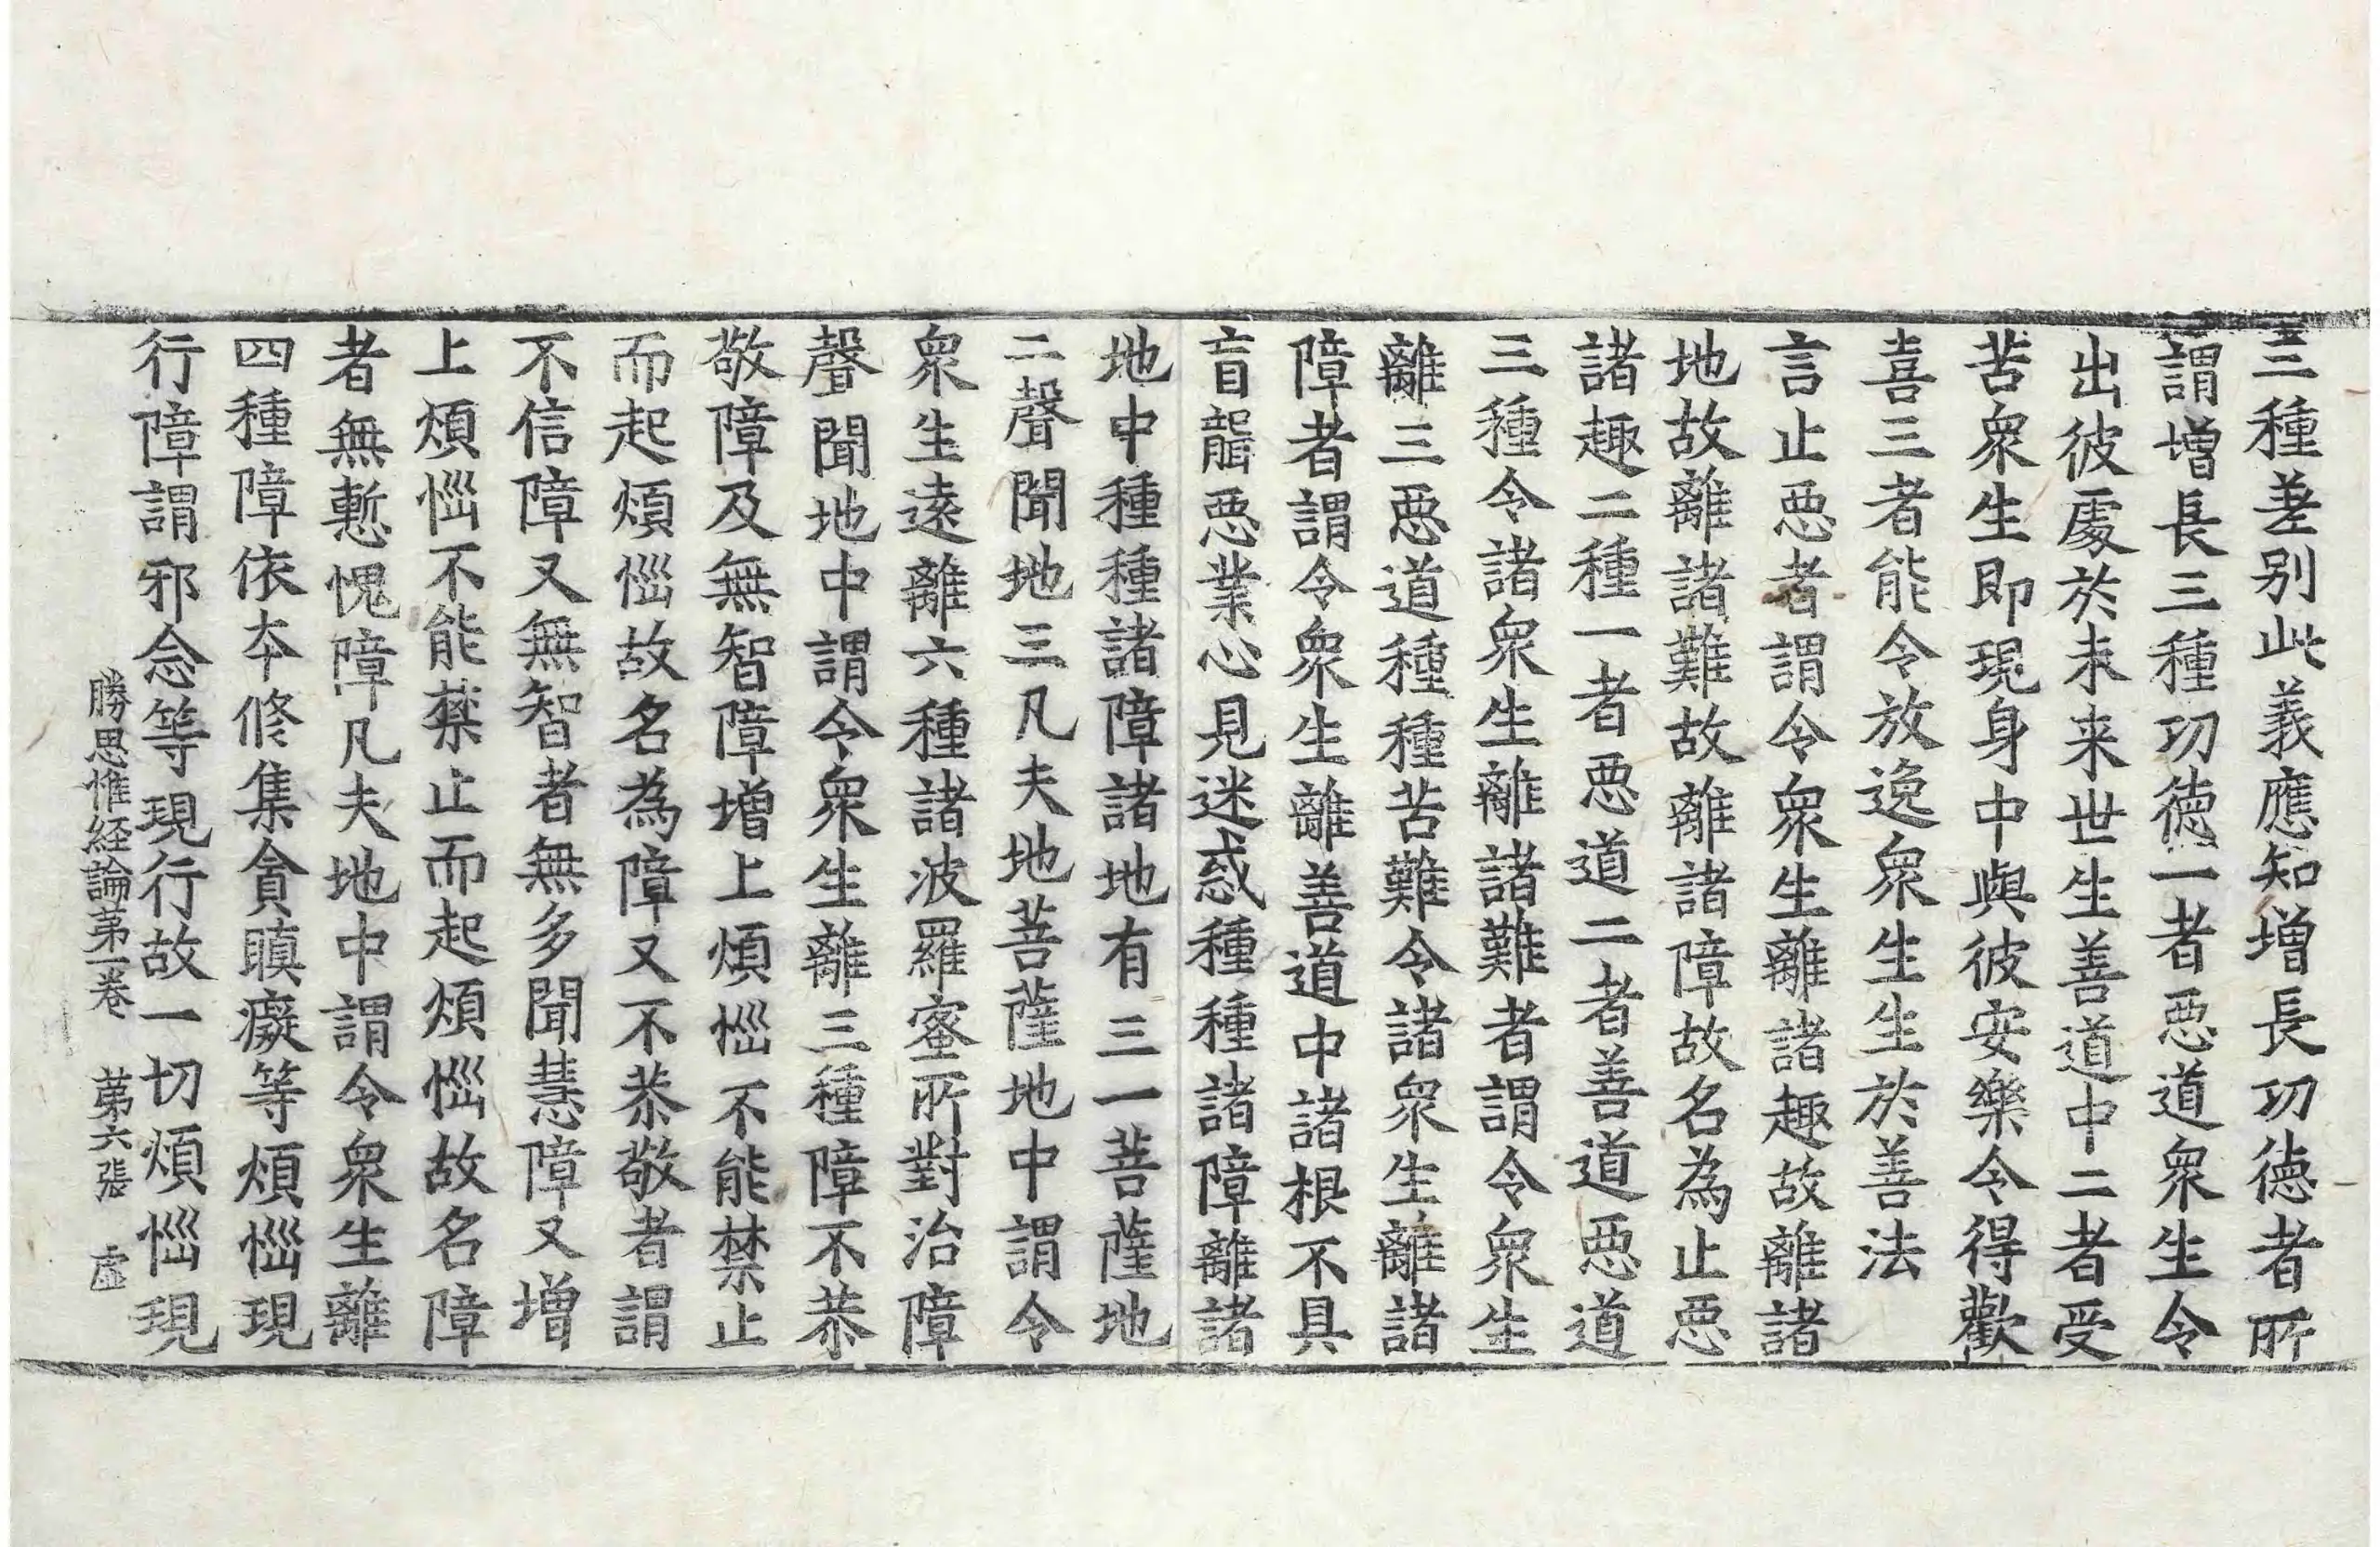 三種差别此義應知增長功德者所
謂增長三種功德一者惡道衆生令
出彼處於未来世生善道中二者受
苦衆生即現身中與彼安樂令得歡
喜三者能令放逸衆生生於善法
言止惡者謂令衆生離諸趣故離諸
地故離諸難故離諸障故名為止惡
諸趣二種一者惡道二者善道惡道
三種令諸衆生離諸難者謂令衆生
離三惡道種種苦難令諸衆生離諸
障者謂令衆生離善道中諸根不具
盲聾惡業心見迷惑種種諸障離諸
地中種種諸障諸地有三一菩薩地
二聲聞地三凡夫地菩薩地中謂令
衆生遠離六種諸波羅蜜所對治障
聲聞地中謂令衆生離三種障不恭
敬障及無智障增上煩惱不能禁止
而起煩惱故名為障又不恭敬者謂
不信障又無智者無多聞慧障又增
上煩惱不能禁止而起煩惱故名障
者無慙愧障凡夫地中謂令衆生離
四種障依本修集貪瞋癡等煩惱現
行障謂邪念等現行故一切煩惱現
勝思惟経論第一卷 第六張 虛